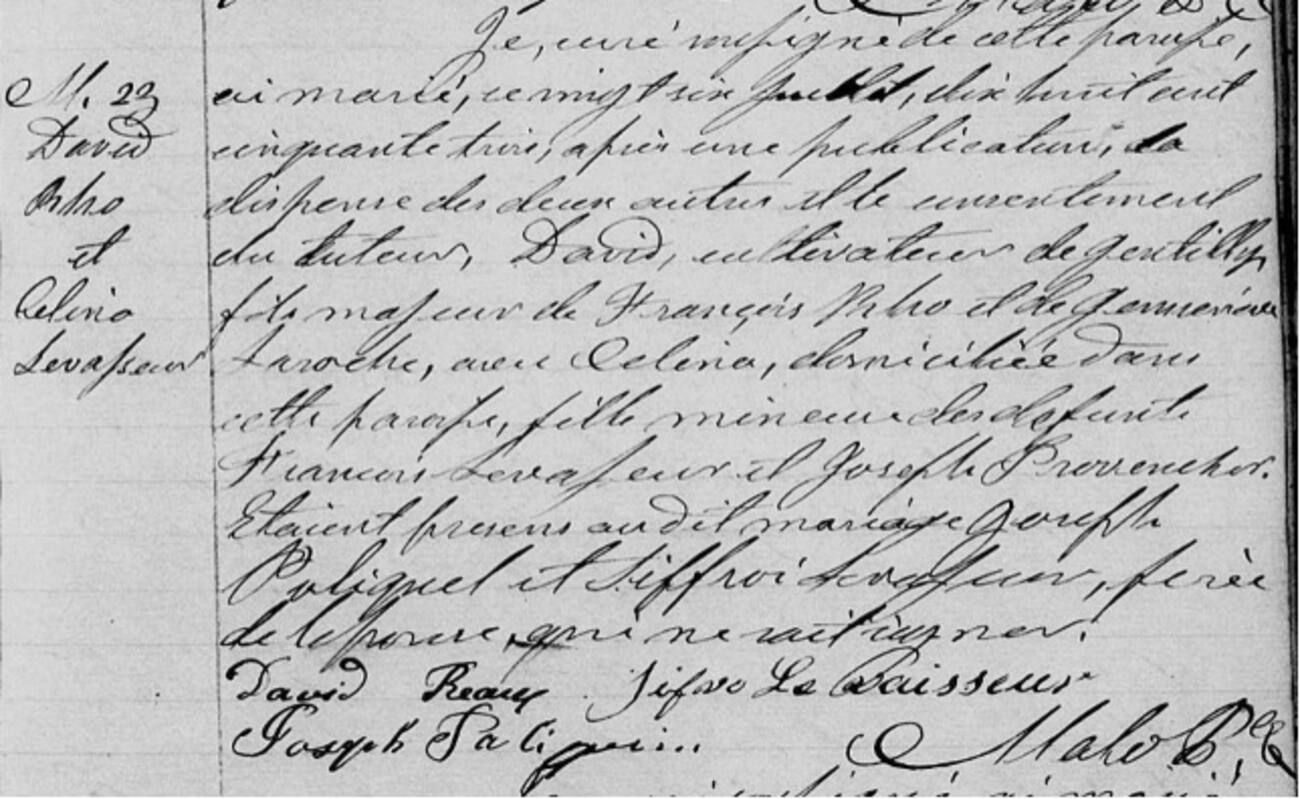 M. 23
David
Rho
et
Celina
Levasseur
Je, curé soussigné de cette paroisse,
ai marié, ce vingt six juillet, dix huit cent
cinquante trois, après une publication, la
dispense des deux autres et le consentement
du tuteur, David, cultivateur de Gentilly,
fils majeur de François Rho et de Genevieve
Laroche, avec Celina, domiciliée dans
cette paroisse, fille mineure des defunts
François Levasseur et Joseph Provencher.
Etaient presens audit mariage Joseph
Poliquel et Siffroi Levasseur, frère
de lepouse, qui ne sait signer.
David Reau Sifro Le Vaisseur
Joseph
Malo Ptre